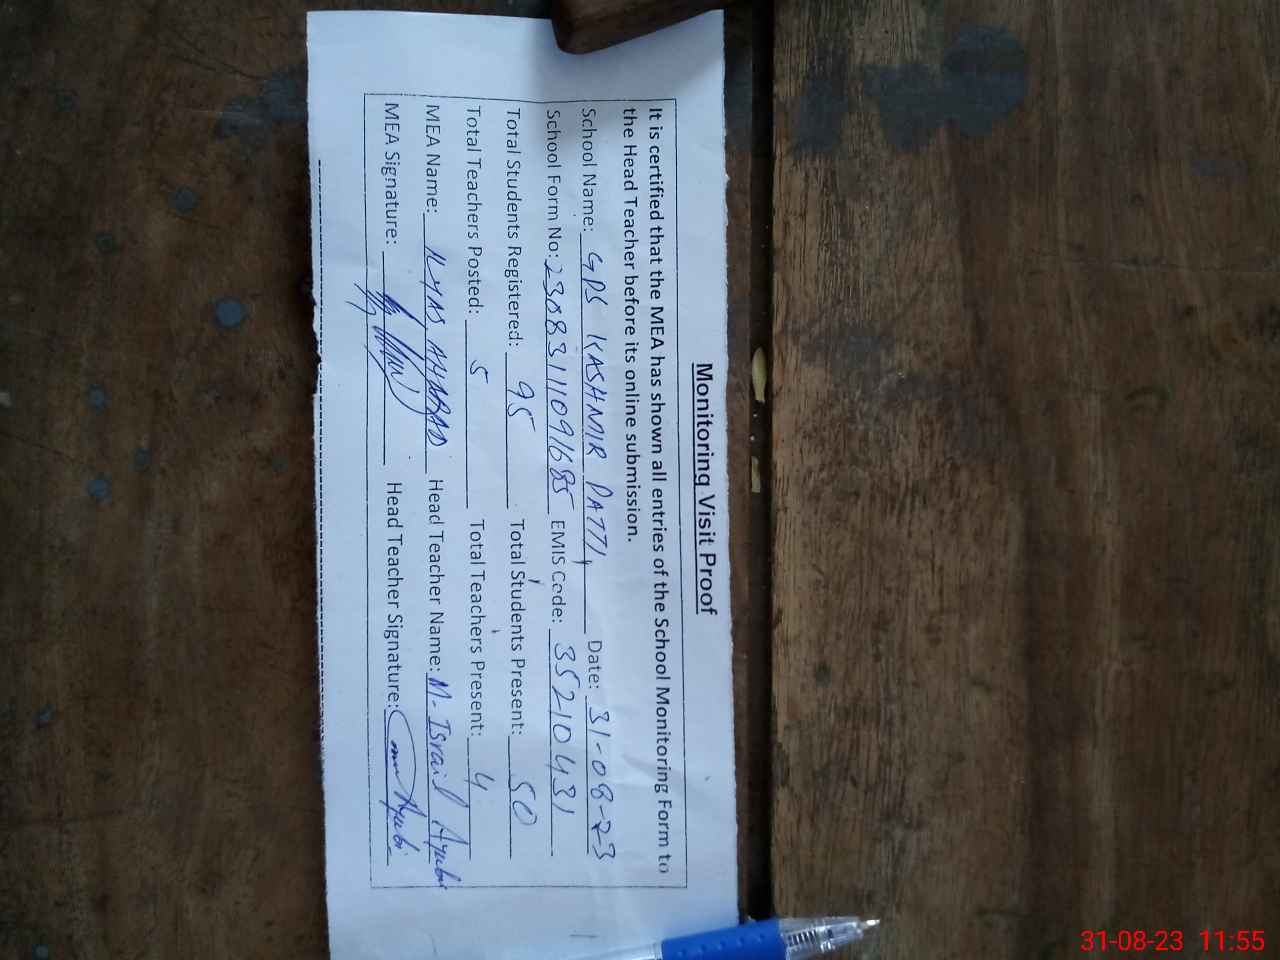 Monitoring Visit Proof
It is certified that the MEA has shown all entries of the School Monitoring Form to
the Head Teacher before its online submission.
School Name: GPS KASHMIR PATTI Date: 31-08-23
School Form No: 2308311091685 EMIS Code: 35210431
Total Students Registered: 95 Total Students Present: 50
Total Teachers Posted: 5 Total Teachers Present: 4
MEA Name: ILYAS AHMAD Head Teacher Name: M. Israil Ayubi
MEA Signature: Head Teacher Signature: Ayubi
31-08-23 11:55